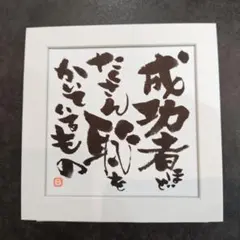 成功者ほど
たくさん恥を
かいているもの